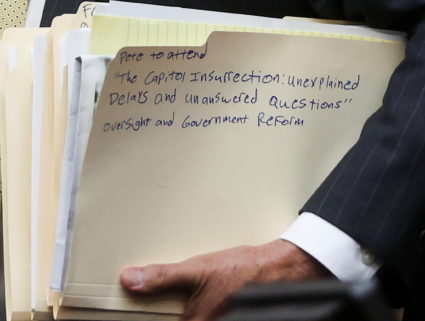 Pete to attend
"The Capitol Insurrection: unexplained
Delays and unanswered Questions"
Oversight and Government Reform